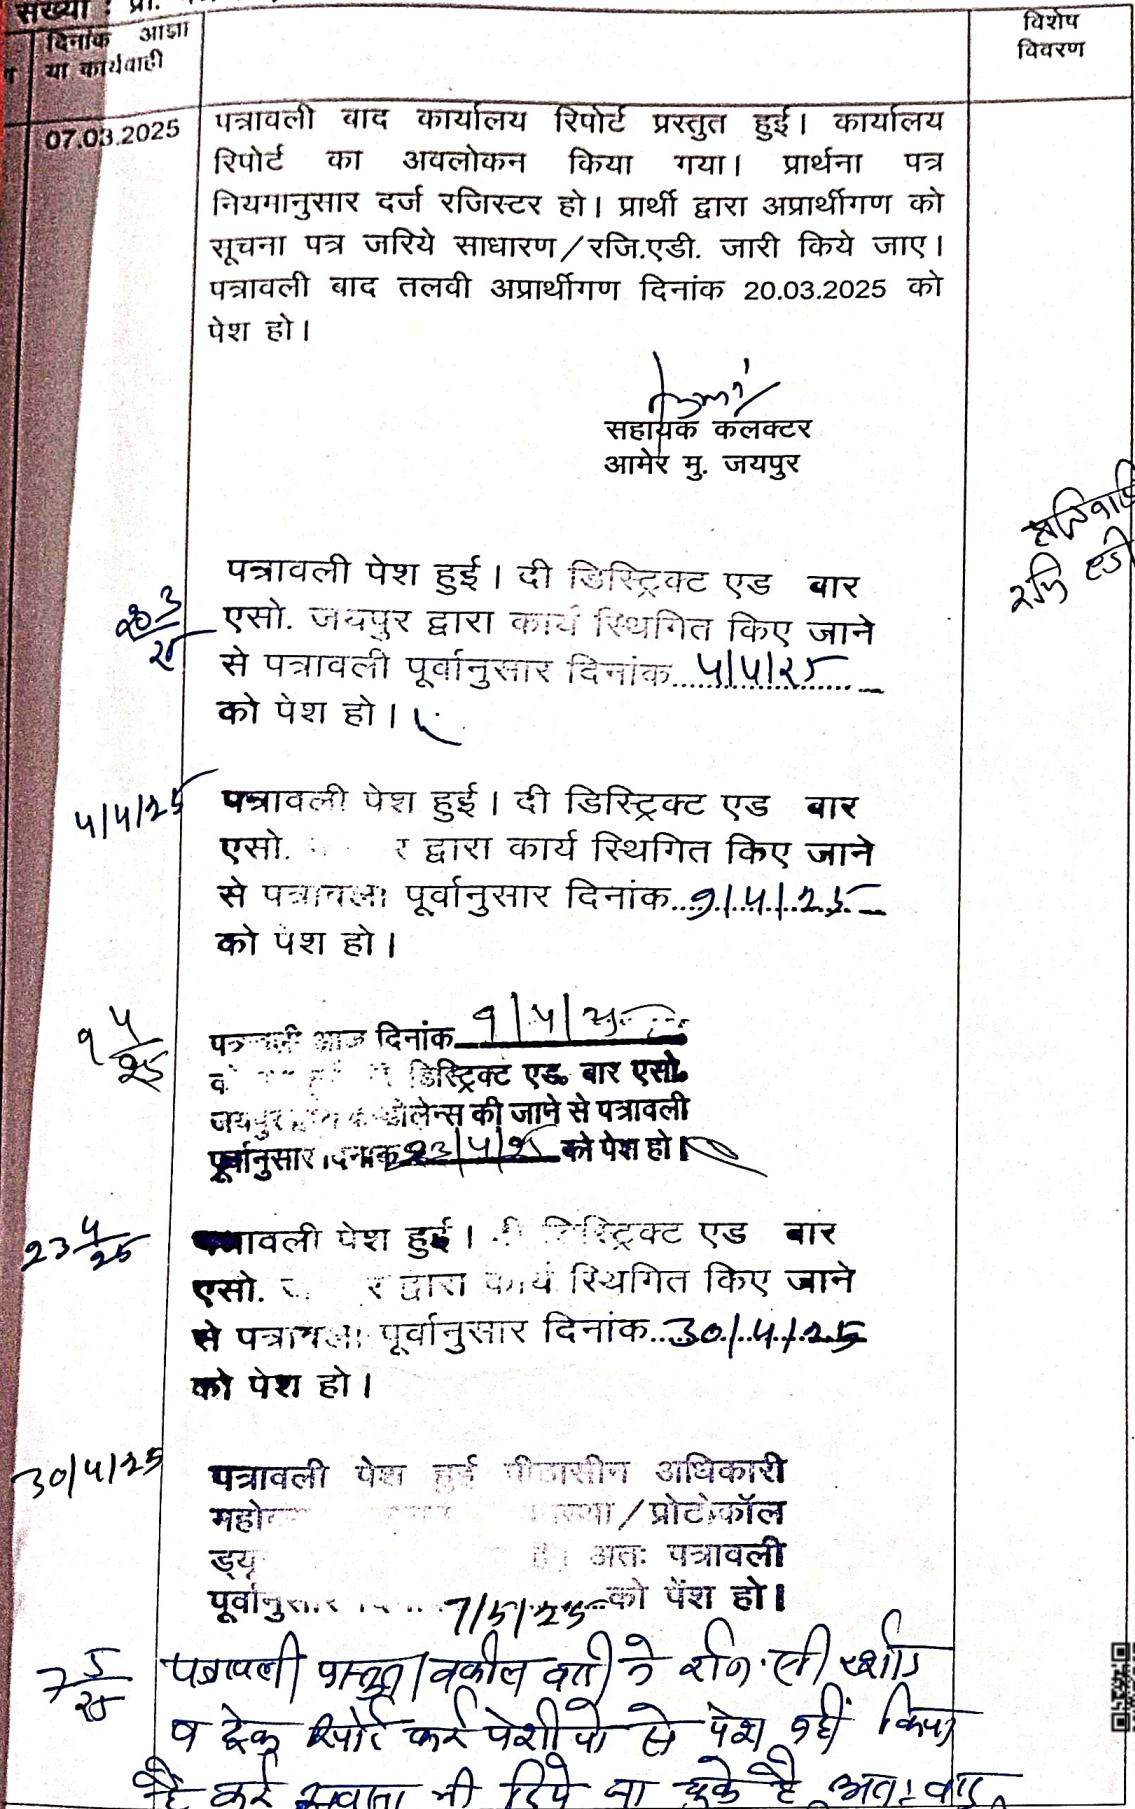 संख्या : प्रा.
दिनांक आज्ञा
या कार्यवाही
विशेष
विवरण
07.03.2025
पत्रावली बाद कार्यालय रिपोर्ट प्रस्तुत हुई। कार्यालय
रिपोर्ट का अवलोकन किया गया। प्रार्थना पत्र
नियमानुसार दर्ज रजिस्टर हो। प्रार्थी द्वारा अप्रार्थीगण को
सूचना पत्र जरिये साधारण/रजि.एडी. जारी किये जाए।
पत्रावली बाद तलवी अप्रार्थीगण दिनांक 20.03.2025 को
पेश हो।
सहायक कलक्टर
आमेर मु. जयपुर
पत्रावली पेश हुई। दी डिस्ट्रिक्ट एड बार
एसो. जयपुर द्वारा कार्य स्थिगित किए जाने
से पत्रावली पूर्वानुसार दिनांक 4/4/25
को पेश हो।
4/4/25
पत्रावली पेश हुई। दी डिस्ट्रिक्ट एड बार
एसो. र द्वारा कार्य स्थिगित किए जाने
से पत्रावली पूर्वानुसार दिनांक 9/4/25
को पेश हो।
9 4/25
पत्रावली आज दिनांक 9/4/25
डिस्ट्रिक्ट एड. बार एसो.
जयपुर की जाने से पत्रावली
पूर्वानुसार दिनांक 23/4/25 को पेश हो।
23 4/25
पत्रावली पेश हुई। दी डिस्ट्रिक्ट एड बार
एसो. र द्वारा कार्य स्थिगित किए जाने
से पत्रावली पूर्वानुसार दिनांक 30/4/25
को पेश हो।
30/4/25
पत्रावली पेश हुई पीठासीन अधिकारी
/प्रोटोकॉल
है। अतः पत्रावली
पूर्वानुसार 7/5/25 को पेश हो।
7 5/25
पत्रावली प्रस्तुत। वकील
व ट्रेक रिपोर्ट कई पेशीयो से पेश नहीं किया
है कई भी दिये जा चुके है अतः